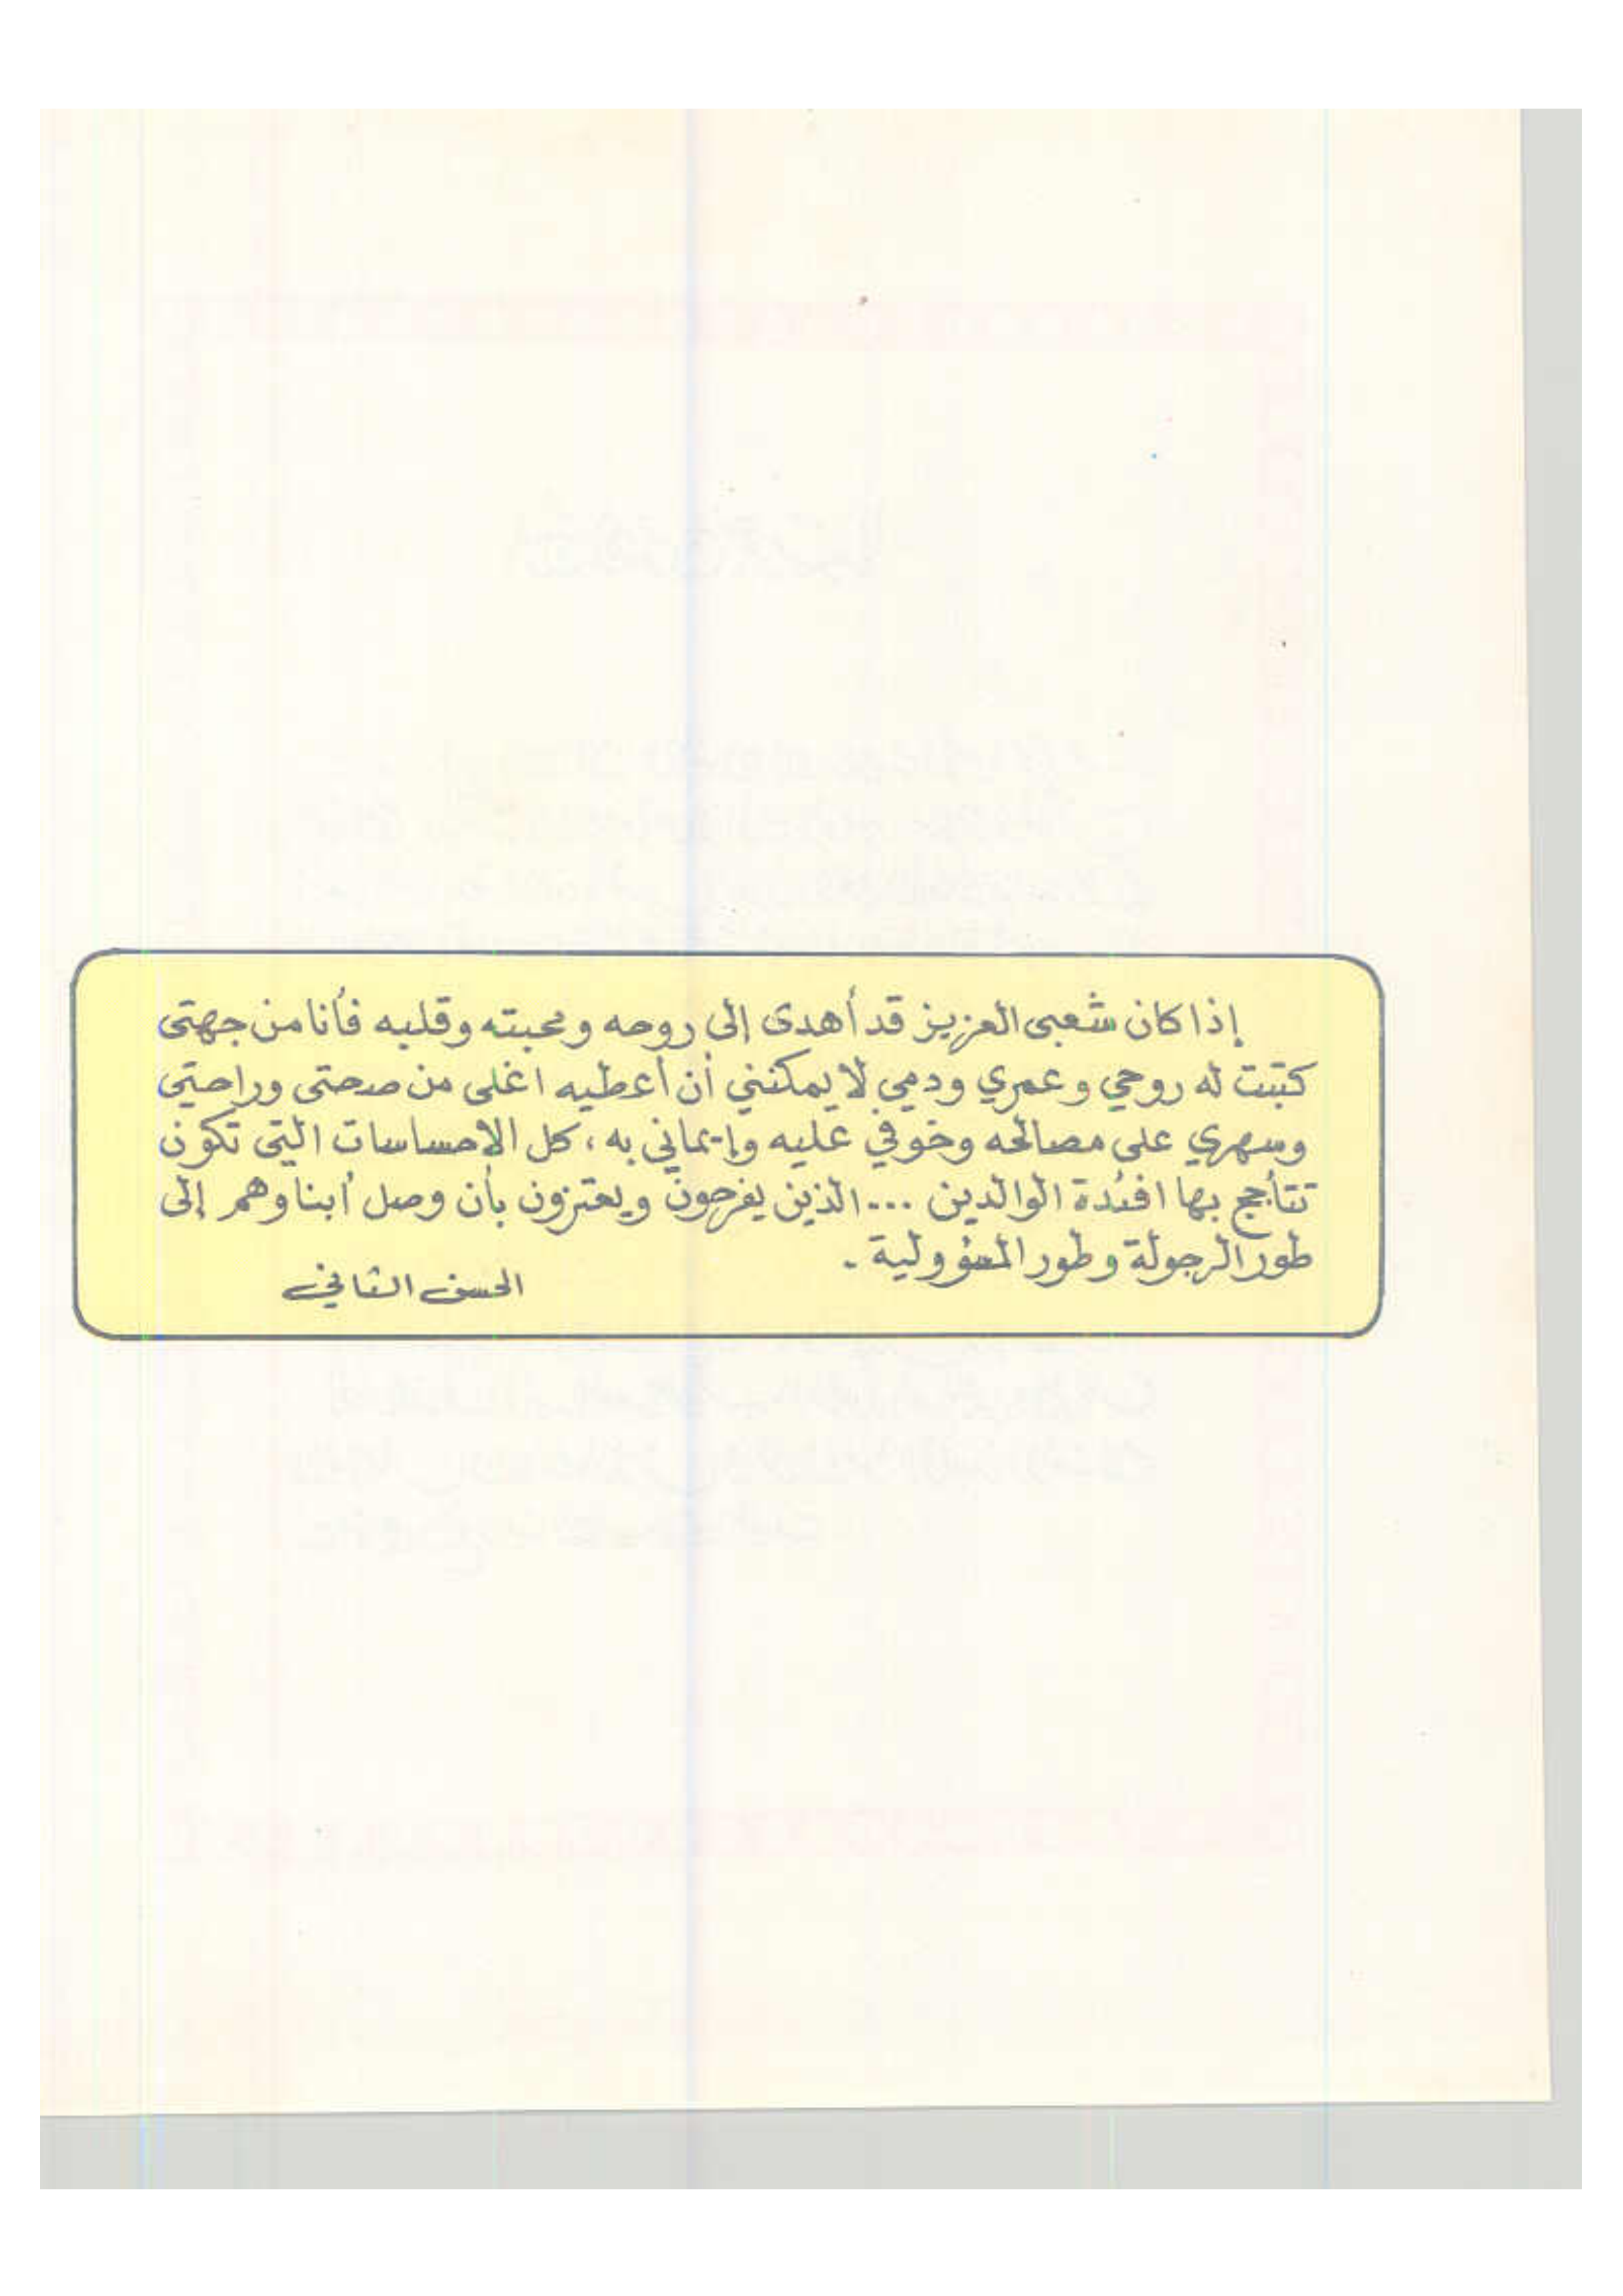 إذا كان شعبي العزيز قد أهدى إلى روحه ومحبته وقلبه فأنا من جهتى
كتبت له روحي وعمري ودمي لا يمكنني أن أعطيه اغلى من صحتى وراحتي
وسهري على مصالحه وخوفي عليه وإيماني به، كل الاحساسات التي تكون
تتأجج بها افئدة الوالدين ... الذين يفرحون ويعتزون بأن وصل أبناوهم إلى
طور الرجولة وطور المسؤولية .
الحسن الثاني